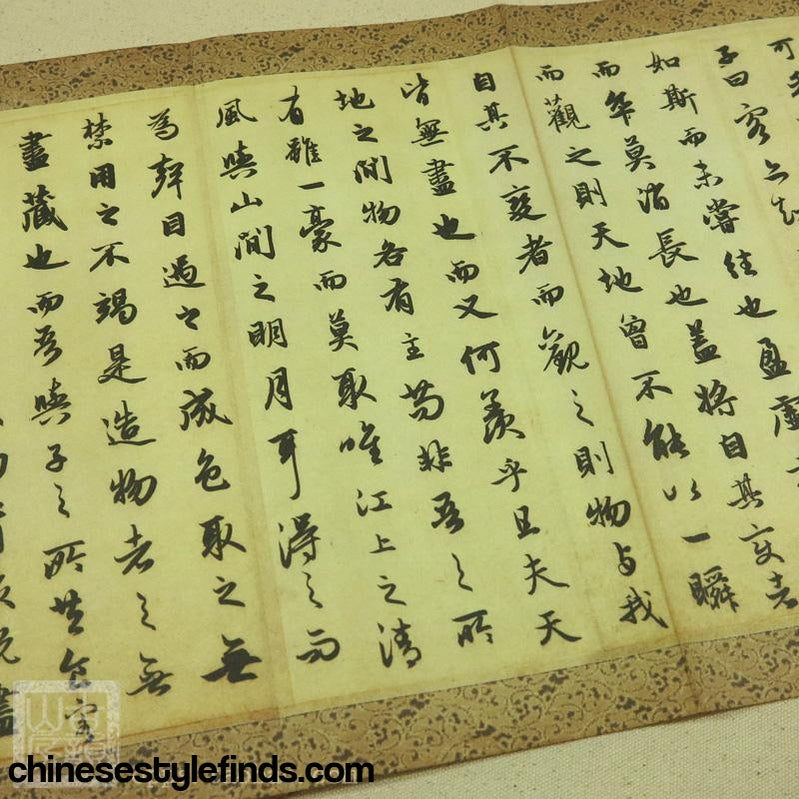 可
子曰客亦知
如斯而未嘗往也盈虛
而卒莫消長也蓋將自其變者
而觀之則天地曾不能以一瞬
自其不變者而觀之則物与我
皆無盡也而又何羨乎且夫天
地之間物各有主苟非吾之所
有雖一豪而莫取唯江上之清
風與山間之明月耳得之而
為聲目遇之而成色取之無
禁用之不竭是造物者之無
盡藏也而吾與子之所共食客
盡
chinesestylefinds.com